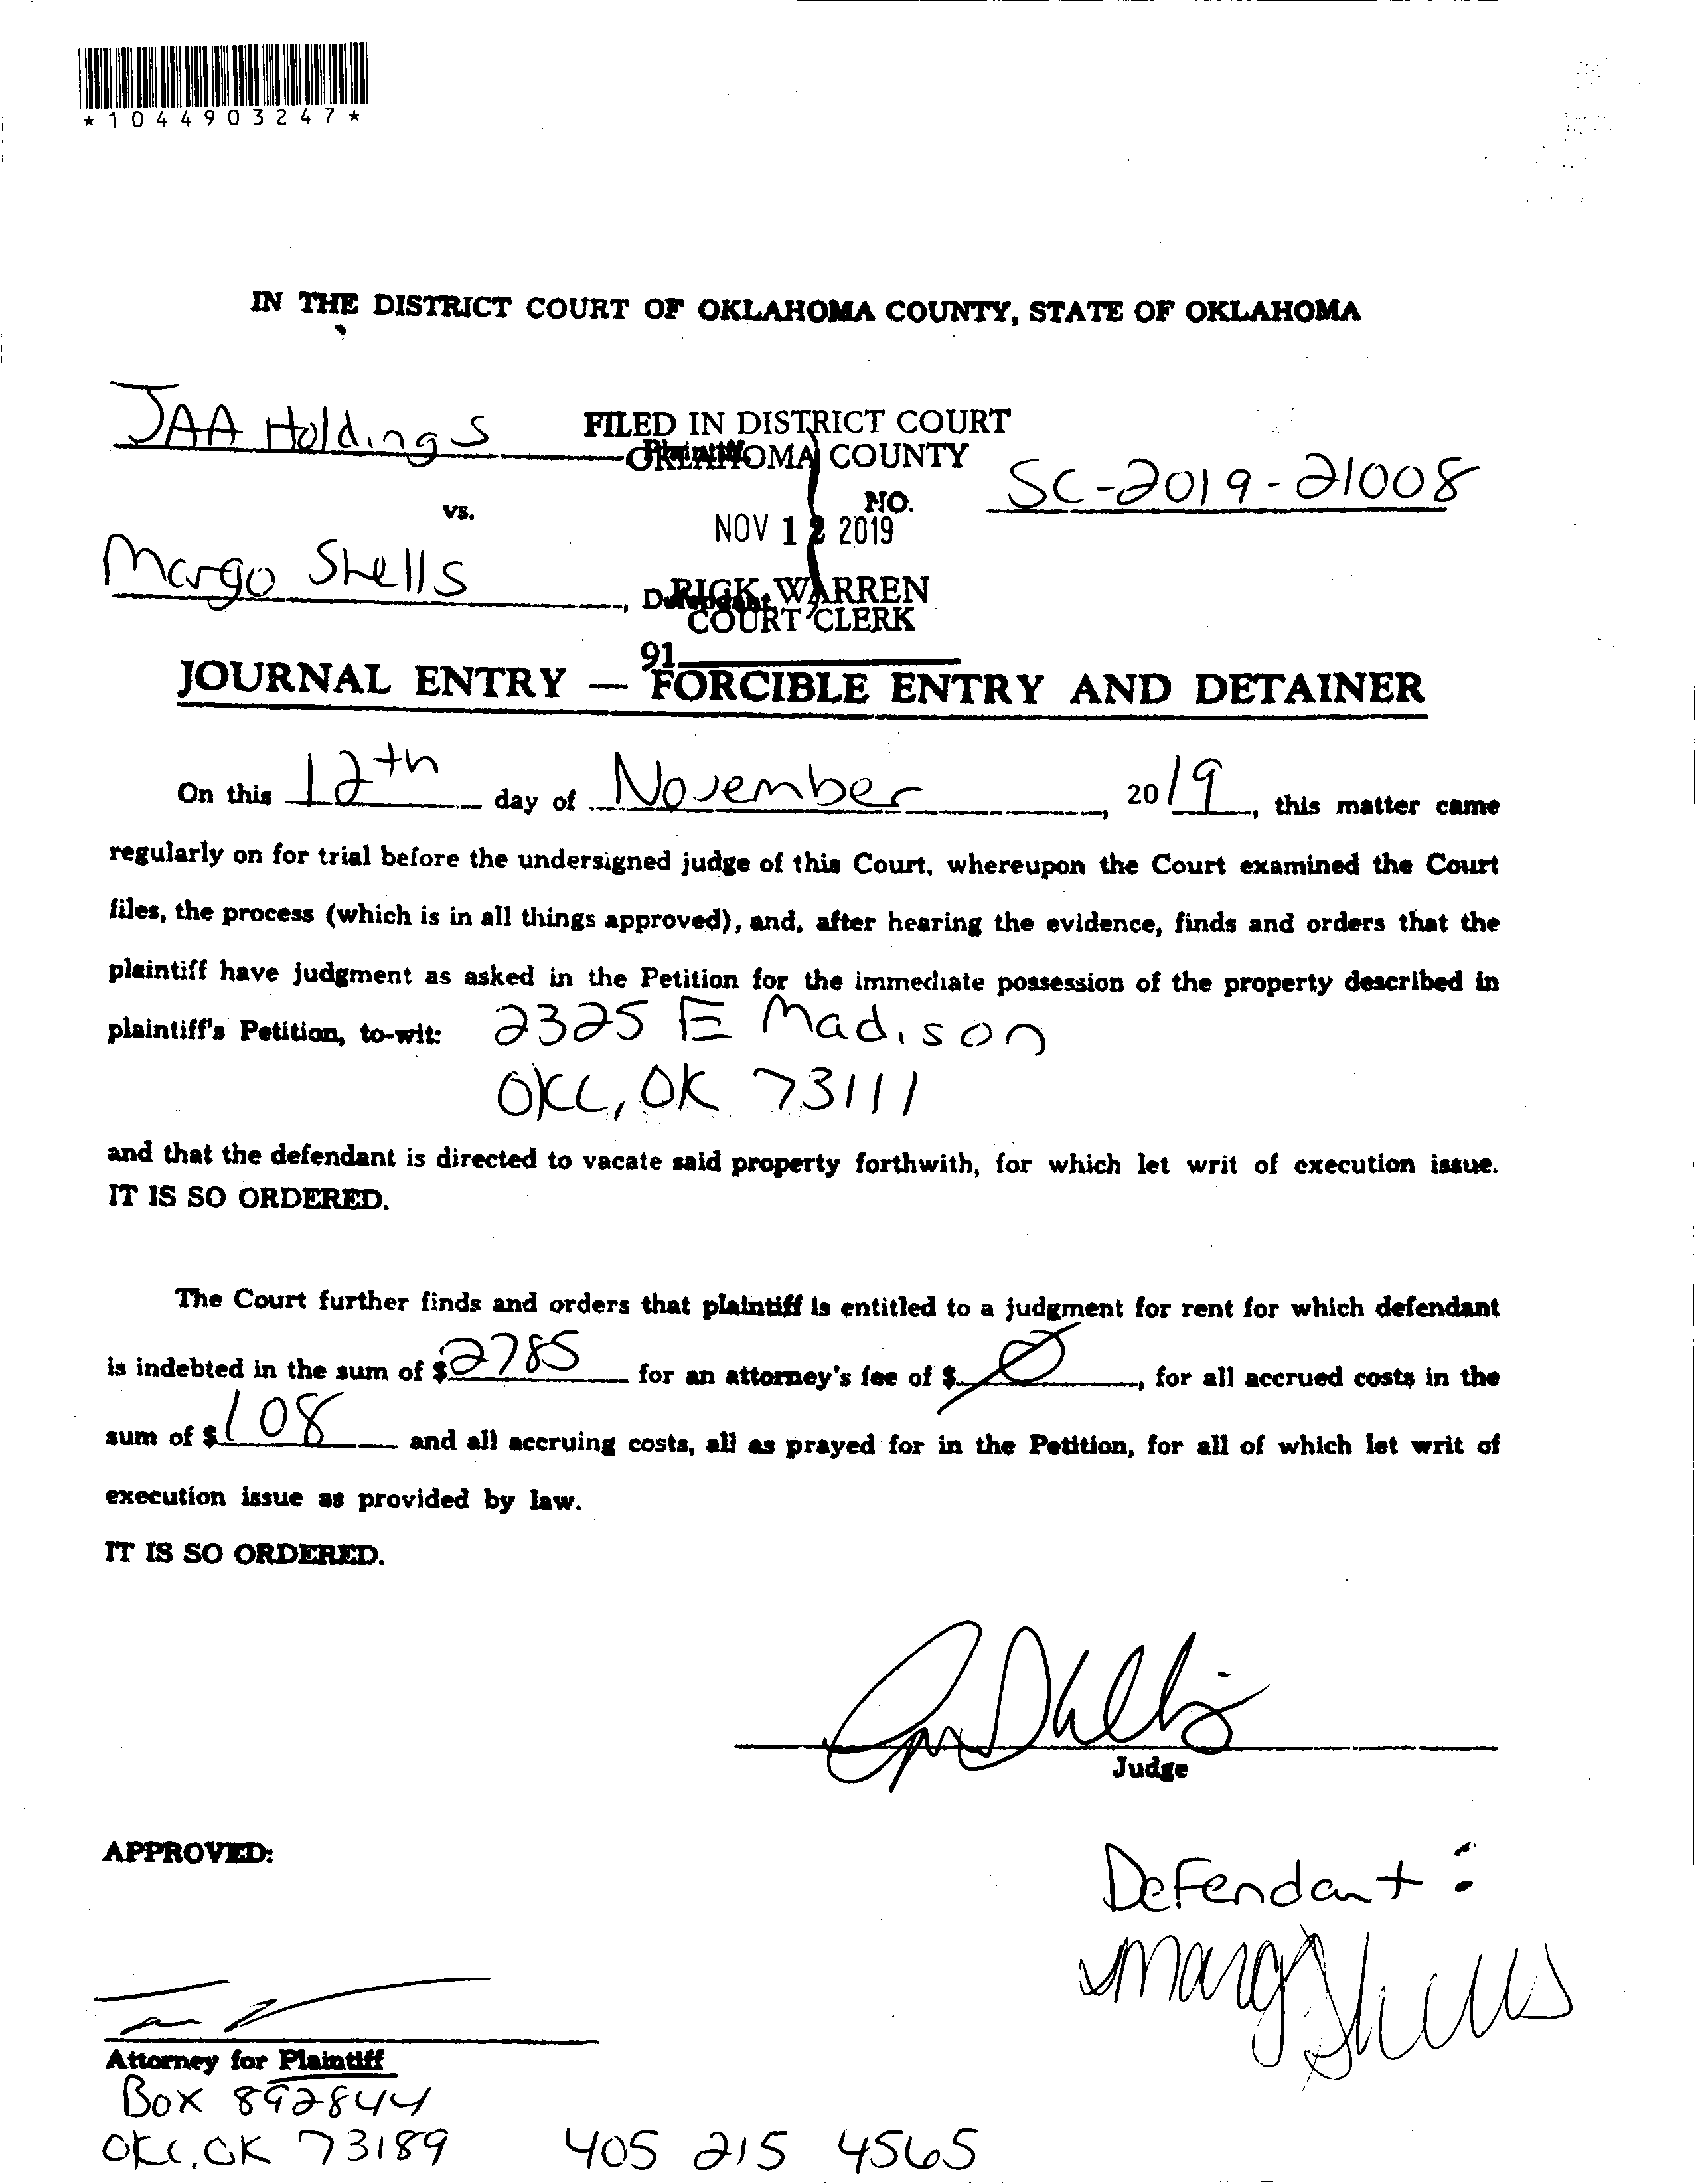 *1044903247*
IN THE DISTRICT COURT OF OKLAHOMA COUNTY, STATE OF OKLAHOMA
JAA Holdings
Plaintiff
FILED IN DISTRICT COURT
OKLAHOMA COUNTY
vs.
NO. SC-2019-21008
NOV 12 2019
Margo Shells, Defendant.
RICK WARREN
COURT CLERK
91
JOURNAL ENTRY — FORCIBLE ENTRY AND DETAINER
On this 12th day of November, 2019, this matter came
regularly on for trial before the undersigned judge of this Court, whereupon the Court examined the Court
files, the process (which is in all things approved), and, after hearing the evidence, finds and orders that the
plaintiff have judgment as asked in the Petition for the immediate possession of the property described in
plaintiff's Petition, to-wit: 2325 E Madison
OKC, OK 73111
and that the defendant is directed to vacate said property forthwith, for which let writ of execution issue.
IT IS SO ORDERED.
The Court further finds and orders that plaintiff is entitled to a judgment for rent for which defendant
is indebted in the sum of $2785 for an attorney's fee of $ Ø, for all accrued costs in the
sum of $108 and all accruing costs, all as prayed for in the Petition, for all of which let writ of
execution issue as provided by law.
IT IS SO ORDERED.
Judge
APPROVED:
Defendant:
Margo Shells
Attorney for Plaintiff
Box 892844
OKC, OK 73189 405 215 4565